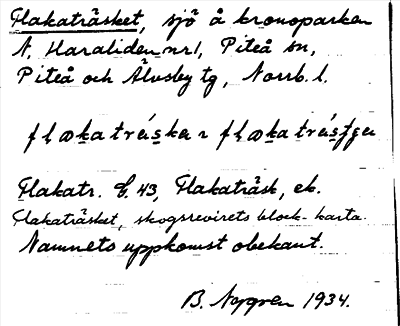 Flakaträsket, sjö å kronoparken
N. Haraliden nr 1, Piteå sn,
Piteå och Älvsby tg, Norrb. l.
Flakatr. E. 43, Flakaträsk, ek.
Flakaträsket, skogsrevirets block-karta.
Namnets uppkomst obekant.
B. Nygren 1934.